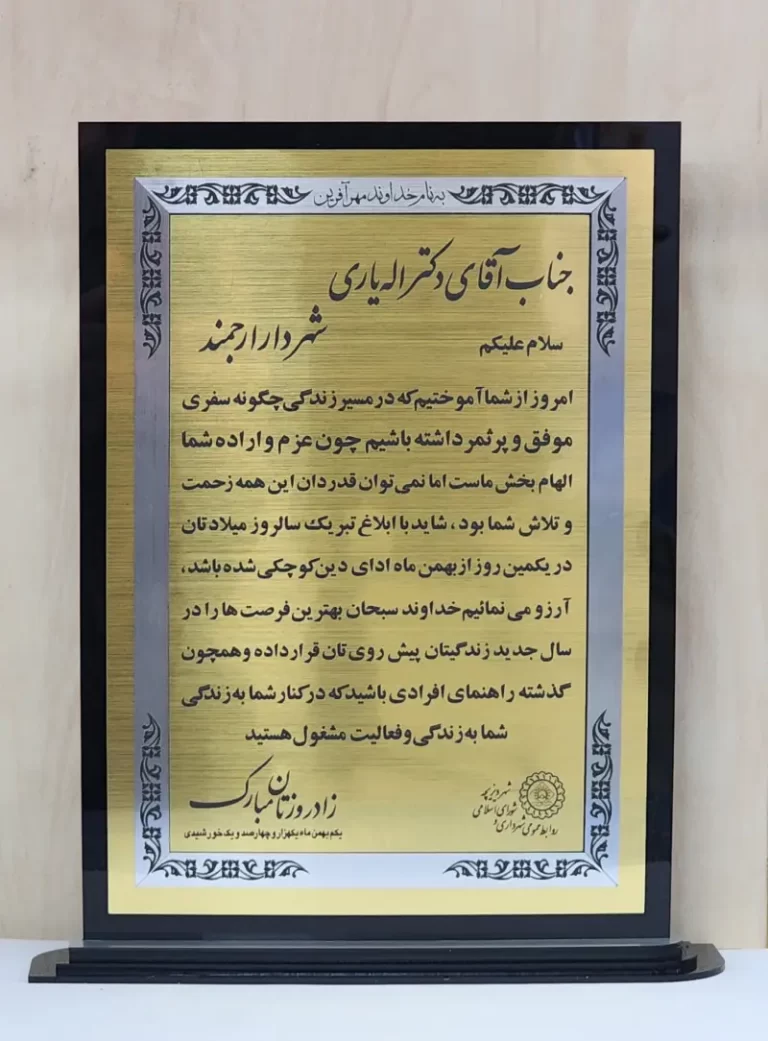 به نام خداوند مهر آفرین
جناب آقای دکتر اله یاری
شهردار ارجمند
سلام علیکم
امروز از شما آموختیم که در مسیر زندگی چگونه سفری
موفق و پرثمر داشته باشیم چون عزم و اراده شما
الهام بخش ماست اما نمی توان قدردان این همه زحمت
و تلاش شما بود ، شاید با ابلاغ تبریک سالروز میلادتان
در یکمین روز از بهمن ماه ادای دین کوچکی شده باشد،
آرزو می نمائیم خداوند سبحان بهترین فرصت ها را در
سال جدید زندگیتان پیش روی تان قرار داده و همچون
گذشته راهنمای افرادی باشید که در کنار شما به زندگی
شما به زندگی و فعالیت مشغول هستید
زادروزتان مبارک
یکم بهمن ماه یکهزار و چهارصد و یک خورشیدی
روابط عمومی شهرداری و
شورای اسلامی
شهر